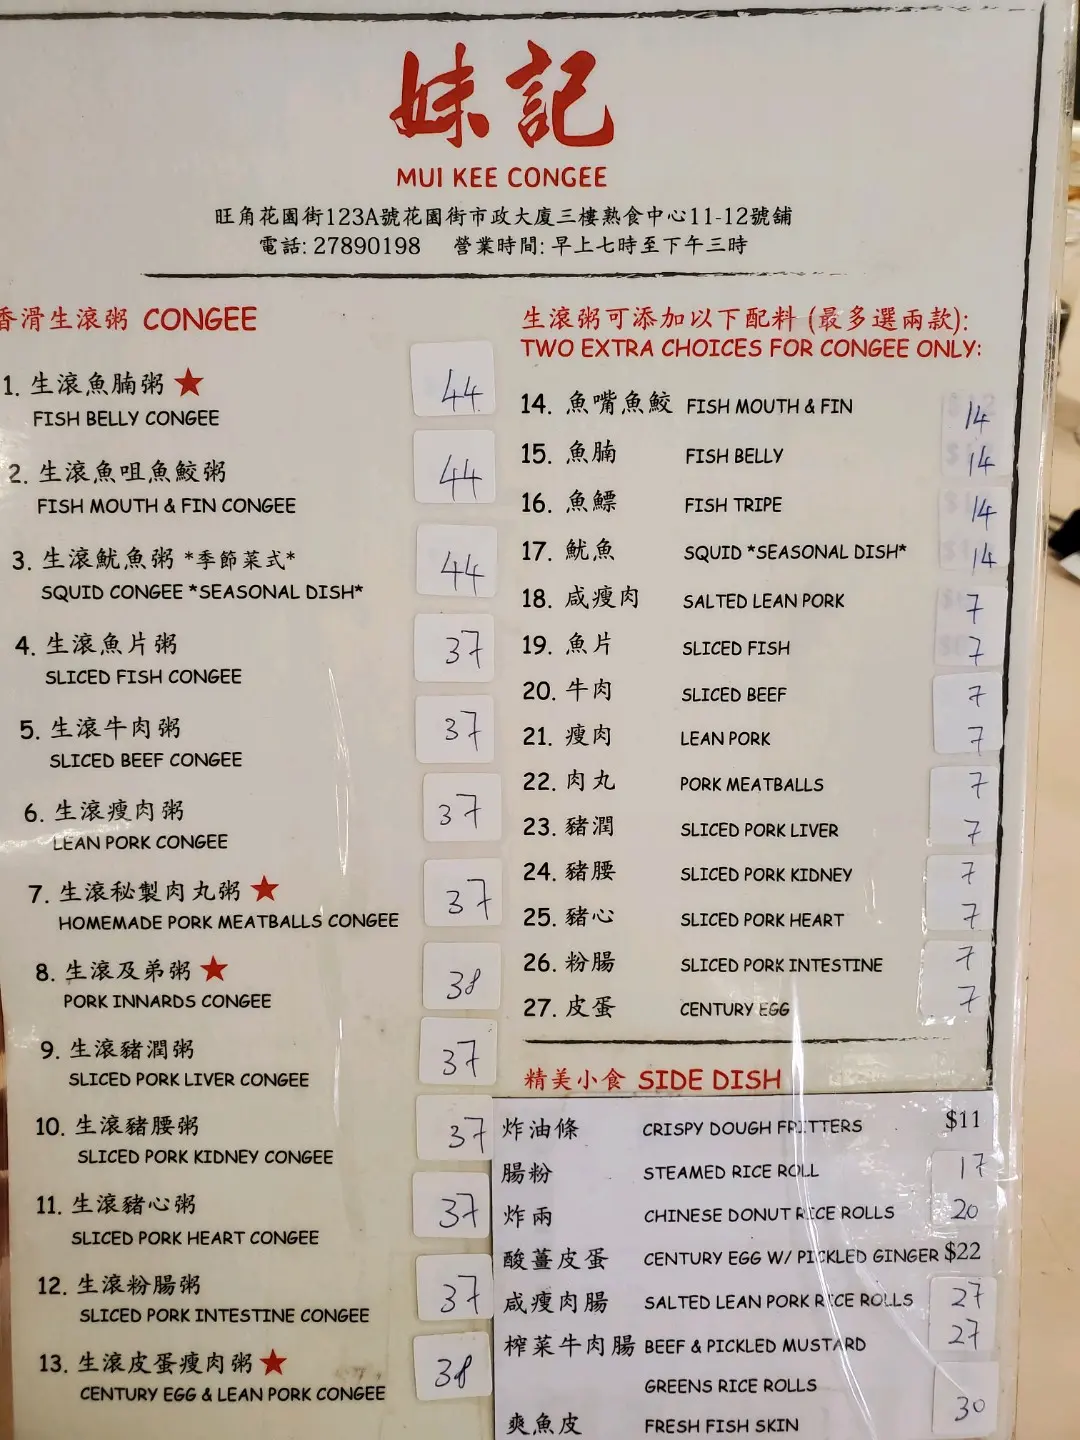 妹記
MUI KEE CONGEE
旺角花園街123A號花園街市政大廈三樓熟食中心11-12號舖
電話: 27890198 營業時間: 早上七時至下午三時
香滑生滾粥 CONGEE
1. 生滾魚腩粥 ★ 44
FISH BELLY CONGEE
2. 生滾魚咀魚鮫粥 44
FISH MOUTH & FIN CONGEE
3. 生滾魷魚粥 *季節菜式* 44
SQUID CONGEE *SEASONAL DISH*
4. 生滾魚片粥 37
SLICED FISH CONGEE
5. 生滾牛肉粥 37
SLICED BEEF CONGEE
6. 生滾瘦肉粥 37
LEAN PORK CONGEE
7. 生滾秘製肉丸粥 ★ 37
HOMEMADE PORK MEATBALLS CONGEE
8. 生滾及弟粥 ★ 38
PORK INNARDS CONGEE
9. 生滾豬潤粥 37
SLICED PORK LIVER CONGEE
10. 生滾豬腰粥 37
SLICED PORK KIDNEY CONGEE
11. 生滾豬心粥 37
SLICED PORK HEART CONGEE
12. 生滾粉腸粥 37
SLICED PORK INTESTINE CONGEE
13. 生滾皮蛋瘦肉粥 ★ 38
CENTURY EGG & LEAN PORK CONGEE
生滾粥可添加以下配料 (最多選兩款):
TWO EXTRA CHOICES FOR CONGEE ONLY:
14. 魚嘴魚鮫 FISH MOUTH & FIN 14
15. 魚腩 FISH BELLY 14
16. 魚鰾 FISH TRIPE 14
17. 魷魚 SQUID *SEASONAL DISH* 14
18. 咸瘦肉 SALTED LEAN PORK 7
19. 魚片 SLICED FISH 7
20. 牛肉 SLICED BEEF 7
21. 瘦肉 LEAN PORK 7
22. 肉丸 PORK MEATBALLS 7
23. 豬潤 SLICED PORK LIVER 7
24. 豬腰 SLICED PORK KIDNEY 7
25. 豬心 SLICED PORK HEART 7
26. 粉腸 SLICED PORK INTESTINE 7
27. 皮蛋 CENTURY EGG 7
精美小食 SIDE DISH
炸油條 CRISPY DOUGH FRITTERS $11
腸粉 STEAMED RICE ROLL 17
炸兩 CHINESE DONUT RICE ROLLS 20
酸薑皮蛋 CENTURY EGG W/ PICKLED GINGER $22
咸瘦肉腸 SALTED LEAN PORK RICE ROLLS 27
榨菜牛肉腸 BEEF & PICKLED MUSTARD 27
GREENS RICE ROLLS
爽魚皮 FRESH FISH SKIN 30